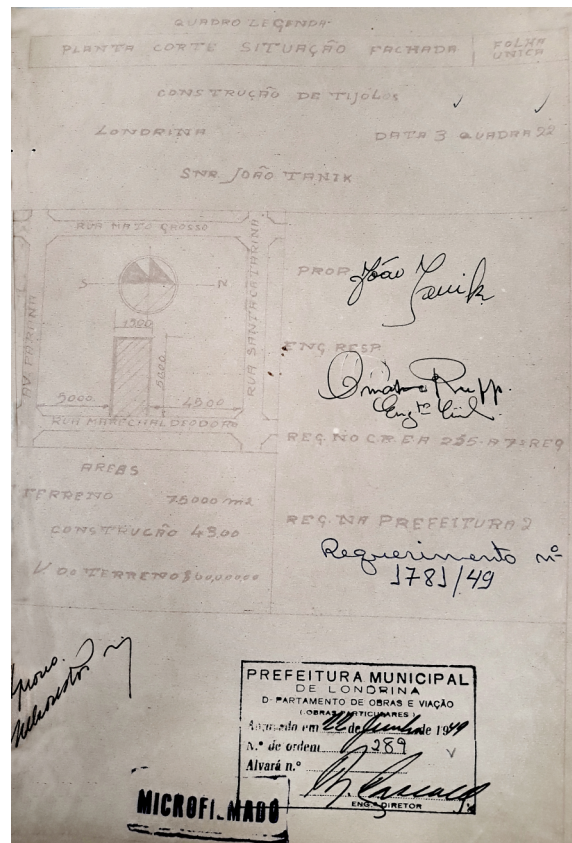 QUADRO LEGENDA
PLANTA CORTE SITUAÇÃO FACHADA
FOLHA
UNICA
CONSTRUÇÃO DE TIJÓLOS
LONDRINA DATA 3 QUADRA 22
SNR. JOÃO TANIK
RUA MATO GROSSO
AV PARANÁ
RUA SANTA CATARINA
S N
1500
5000
5000 4500
RUA MARECHAL DEODORO
PROP.
João Tanik
ENG RESP.
Rupp.
Engto Civil.
REG. NO CREA 255-A 7ª REG
AREAS
TERRENO 75000 m2
CONSTRUCÃO 49,00
V. DO TERRENO $60,000,00
REG. NA PREFEITURA
Requerimento nº
1781/49
PREFEITURA MUNICIPAL
DE LONDRINA
D PARTAMENTO DE OBRAS E VIAÇÃO
(OBRAS PARTICULARES)
Aprovado em 22 de Junho de 1949
N.º de ordem 289
Alvará n.º
ENG.º DIRETOR
MICROFILMADO